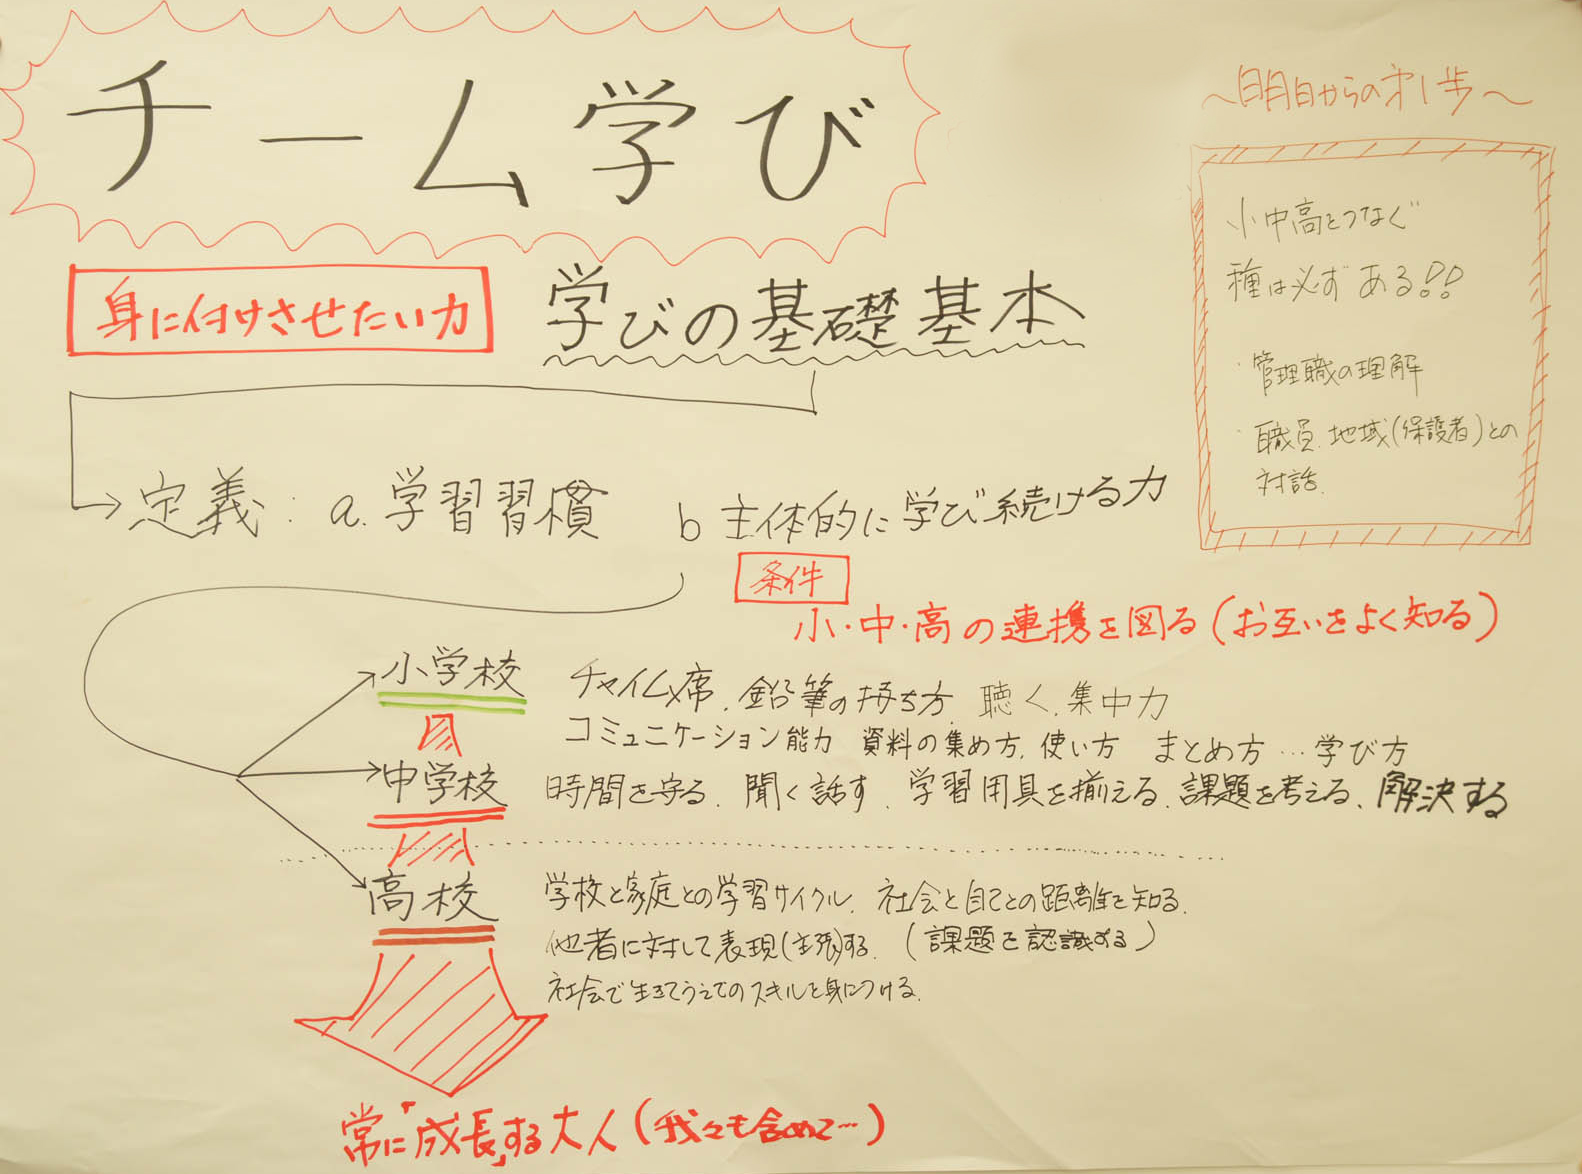 チーム学び
身に付けさせたい力 学びの基礎基本
定義: a. 学習習慣 b 主体的に学び続ける力
条件
小・中・高の連携を図る(お互いをよく知る)
小学校 チャイム席、鉛筆の持ち方、聴く、集中力
コミュニケーション能力 資料の集め方、使い方 まとめ方…学び方
中学校 時間を守る、聞く話す、学習用具を揃える、課題を考える、解決する
高校 学校と家庭との学習サイクル、社会と自己との距離を知る。
他者に対して表現(主張)する。(課題を認識する)
社会で生きてうえでのスキルを身につける。
常に「成長」する大人(我々も含めて…)
〜明日からの才1歩〜
小中高をつなぐ
種は必ずある!!
・管理職の理解
・職員、地域(保護者)との
対話。